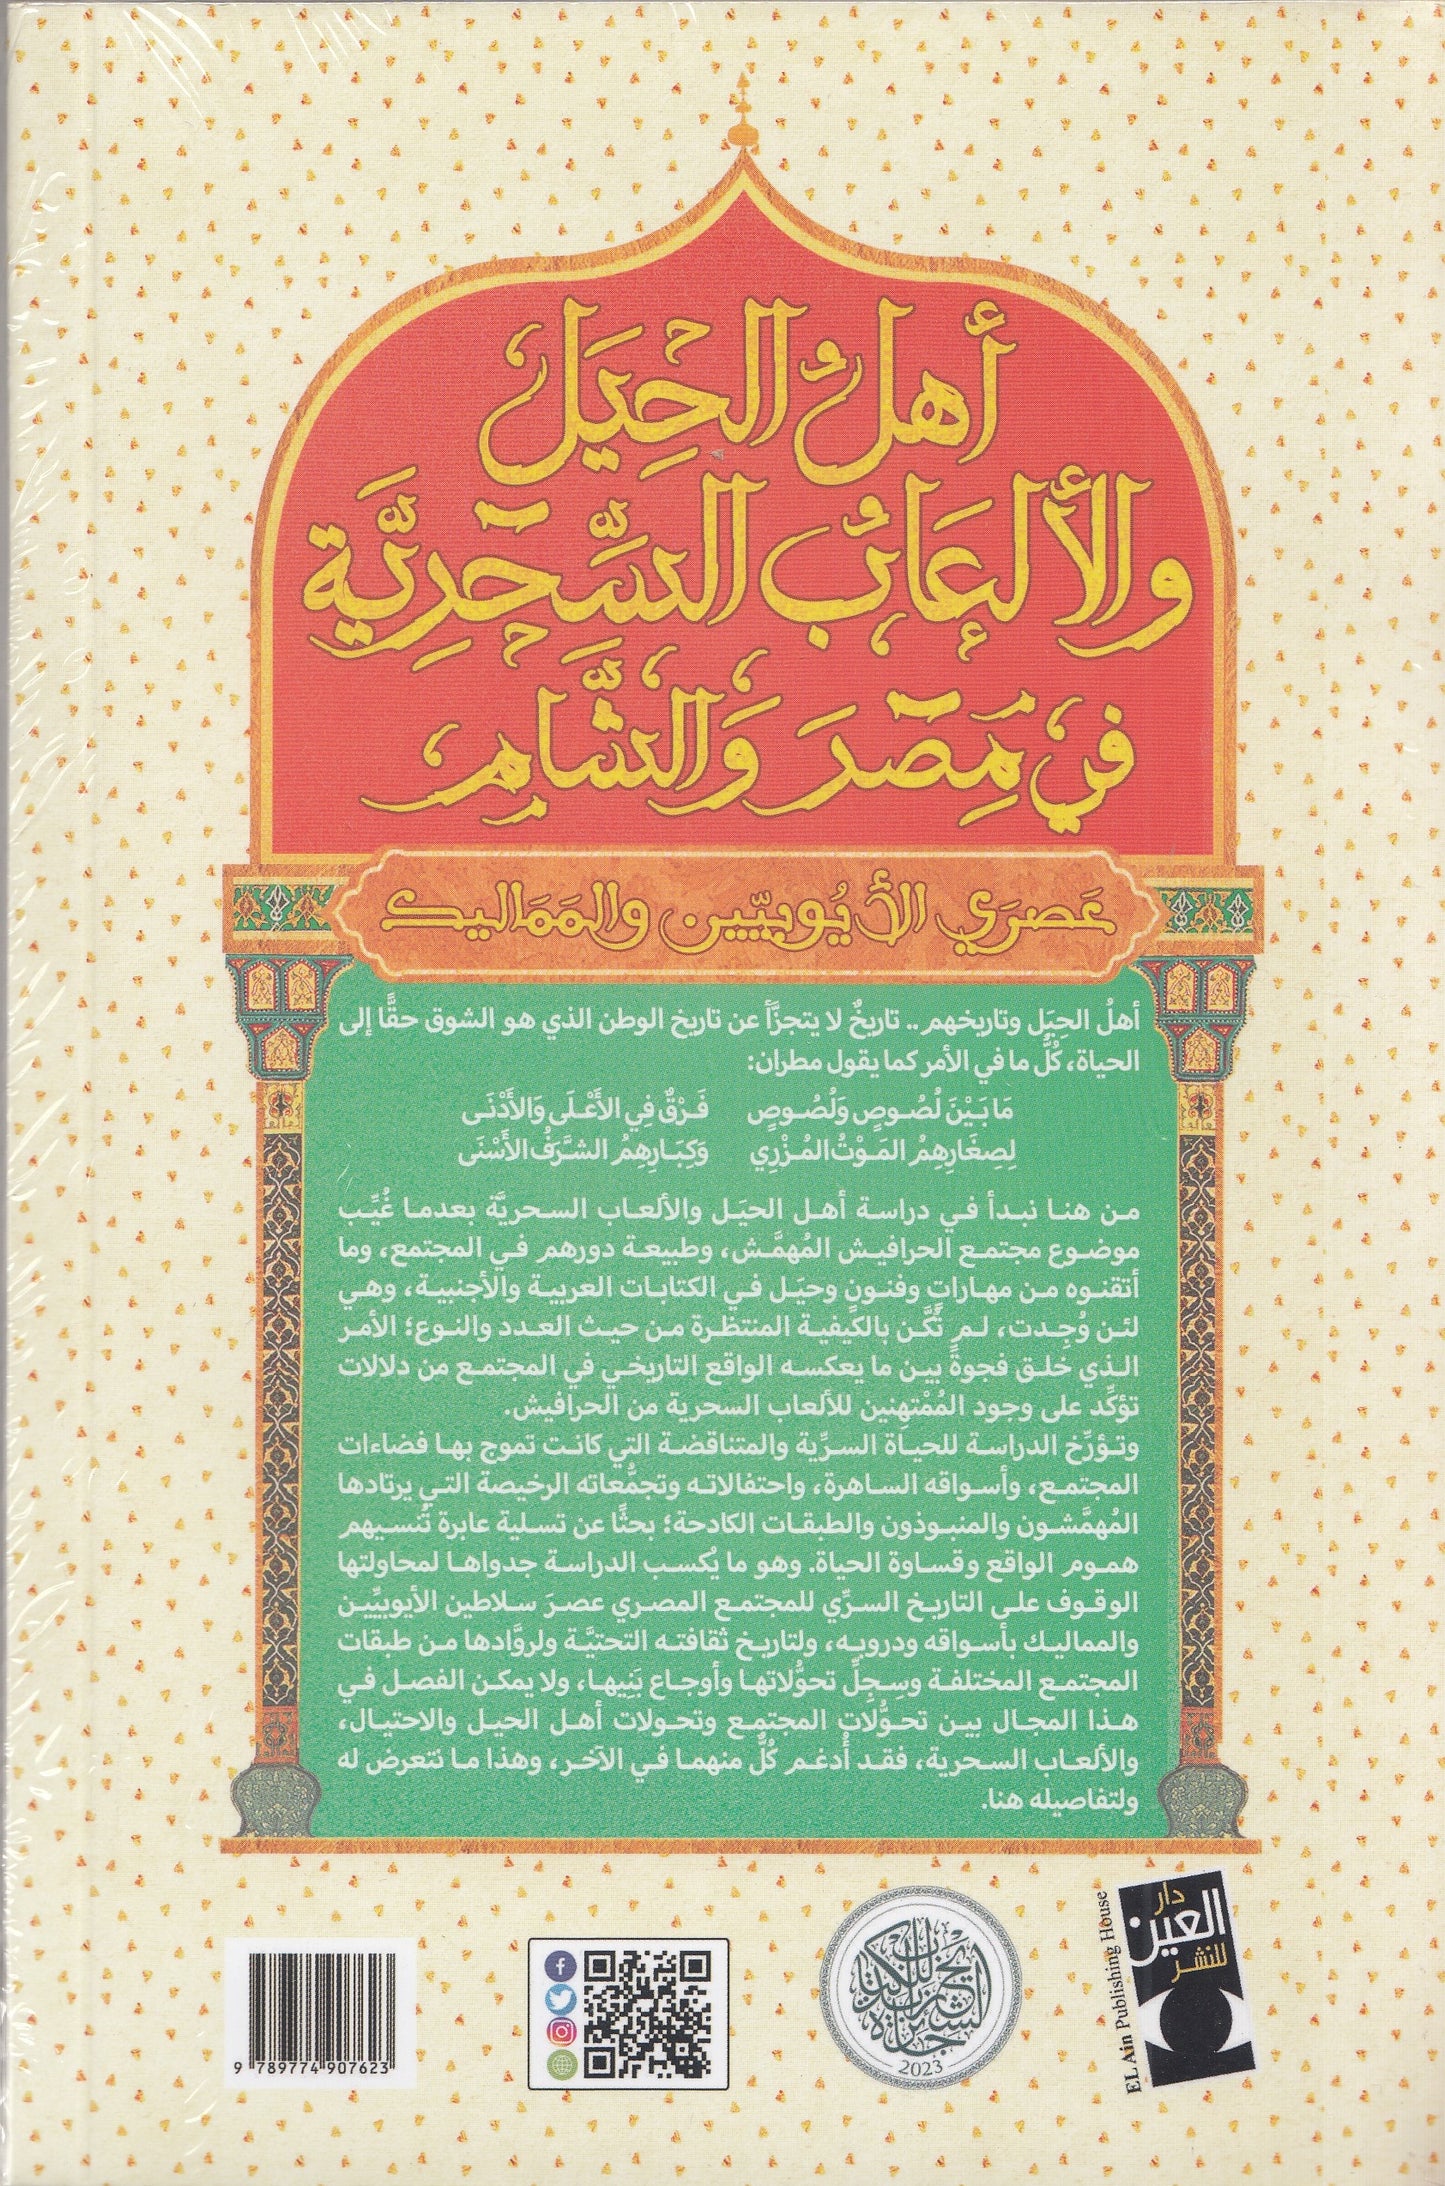 أهلُ الحِيَل
والألعَابُ السِّحْرِيَّة
في مِصْرَ وَالشَّام
عَصرَي الأيُوبيّين والمَمَاليك
أهلُ الحِيَل وتاريخهم .. تاريخٌ لا يتجزَّأ عن تاريخ الوطن الذي هو الشوق حقًّا إلى
الحياة، كُلُّ ما في الأمر كما يقول مطران:
مَا بَيْنَ لُصُوصٍ وَلُصُوصٍ فَرْقٌ فِي الأَعْلَى وَالأَدْنَى
لِصِغَارِهِمُ المَوْتُ المُزْرِي وَكِبَارِهِمُ الشَّرَفُ الأَسْنَى
من هنا نبدأ في دراسة أهل الحيَل والألعاب السحريَّة بعدما غُيِّب
موضوع مجتمع الحرافيش المُهمَّش، وطبيعة دورهم في المجتمع، وما
أتقنوه من مهاراتٍ وفنونٍ وحيَل في الكتابات العربية والأجنبية، وهي
لئن وُجِدت، لم تَكُن بالكيفية المنتظرة من حيث العدد والنوع؛ الأمر
الذي خلق فجوةً بين ما يعكسه الواقع التاريخي في المجتمع من دلالات
تؤكِّد على وجود المُمْتهِنين للألعاب السحرية من الحرافيش.
وتؤرِّخ الدراسة للحياة السرِّية والمتناقضة التي كانت تموج بها فضاءات
المجتمع، وأسواقه الساهرة، واحتفالاته وتجمُّعاته الرخيصة التي يرتادها
المُهمَّشون والمنبوذون والطبقات الكادحة؛ بحثًا عن تسلية عابرة تُنسيهم
هموم الواقع وقساوة الحياة. وهو ما يُكسب الدراسة جدواها لمحاولتها
الوقوف على التاريخ السرِّي للمجتمع المصري عصرَ سلاطين الأيوبيِّين
والمماليك بأسواقه ودروبه، ولتاريخ ثقافته التحتيَّة ولروَّادها من طبقات
المجتمع المختلفة وسِجِلِّ تحوُّلاتها وأوجاع بَنِيها، ولا يمكن الفصل في
هذا المجال بين تحوُّلات المجتمع وتحولات أهل الحيل والاحتيال،
والألعاب السحرية، فقد أُدغم كُلٌّ منهما في الآخر، وهذا ما نتعرض له
ولتفاصيله هنا.
دار
العين
للنشر
EL Ain Publishing House
2023
9 789774 907623